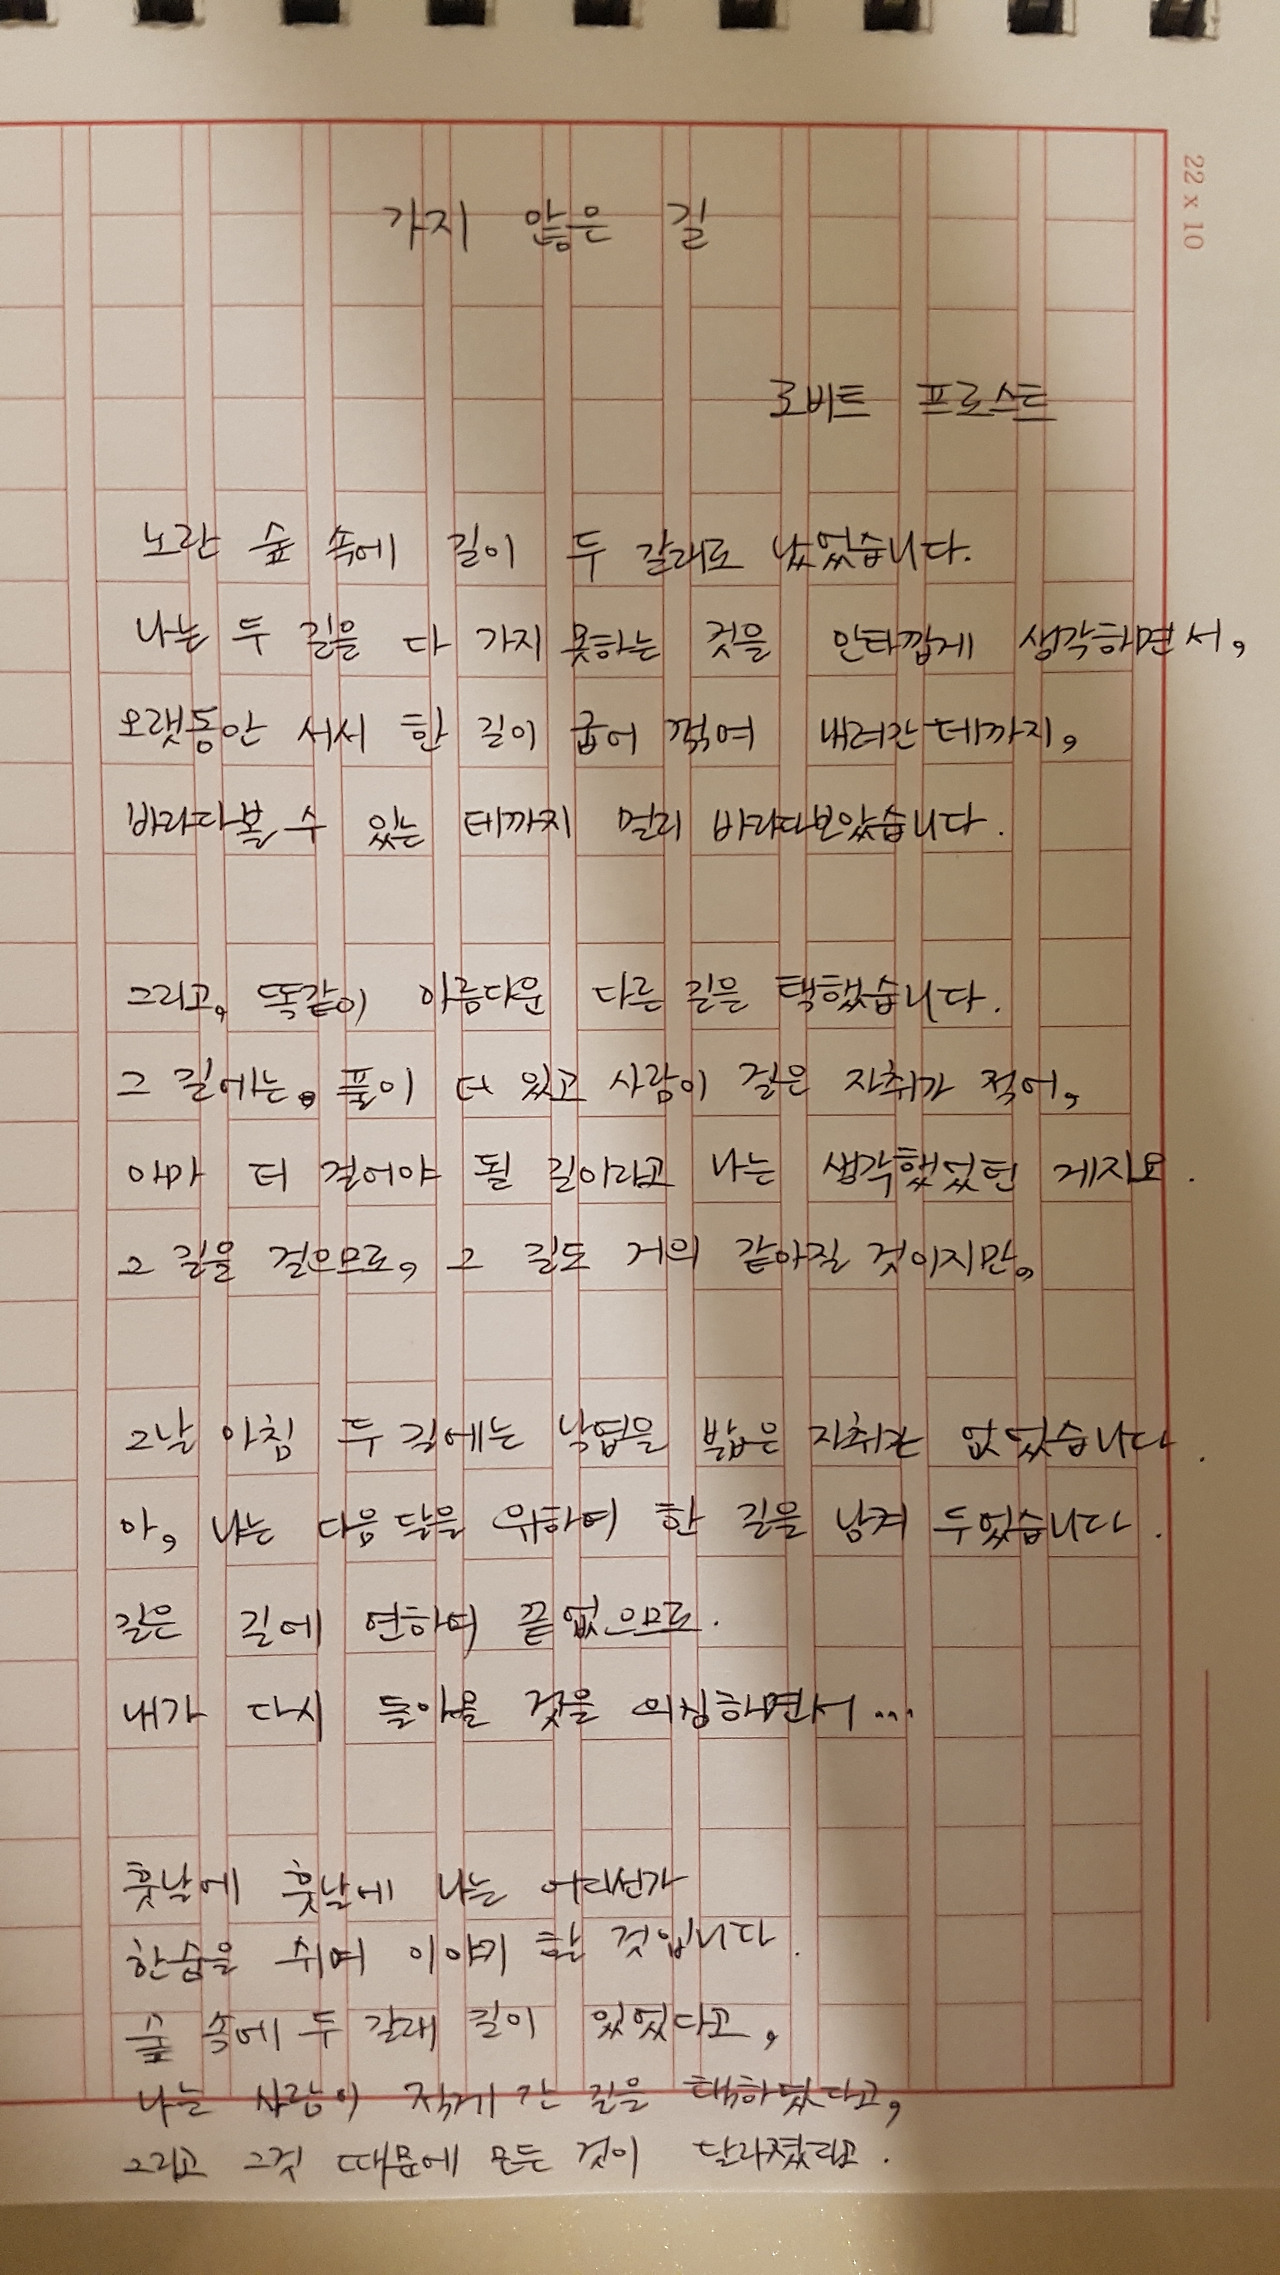 가지 않은 길
22 x 10
로버트 프로스트
노란 숲 속에 길이 두 갈래로 났었습니다.
나는 두 길을 다 가지 못하는 것을 안타깝게 생각하면서,
오랫동안 서서 한 길이 굽어 꺾여 내려간 데까지,
바라다볼 수 있는 데까지 멀리 바라다보았습니다.
그리고, 똑같이 아름다운 다른 길을 택했습니다.
그 길에는, 풀이 더 있고 사람이 걸은 자취가 적어,
아마 더 걸어야 될 길이라고 나는 생각했었던 게지요.
그 길을 걸으므로, 그 길도 거의 같아질 것이지만,
그날 아침 두 길에는 낙엽을 밟은 자취는 없었습니다.
아, 나는 다음 날을 위하여 한 길을 남겨 두었습니다.
길은 길에 연하여 끝없으므로.
내가 다시 돌아올 것을 의심하면서...
훗날에 훗날에 나는 어디선가
한숨을 쉬며 이야기 할 것입니다.
숲 속에 두 갈래 길이 있었다고,
나는 사람이 적게 간 길을 택하였다고,
그리고 그것 때문에 모든 것이 달라졌다고.